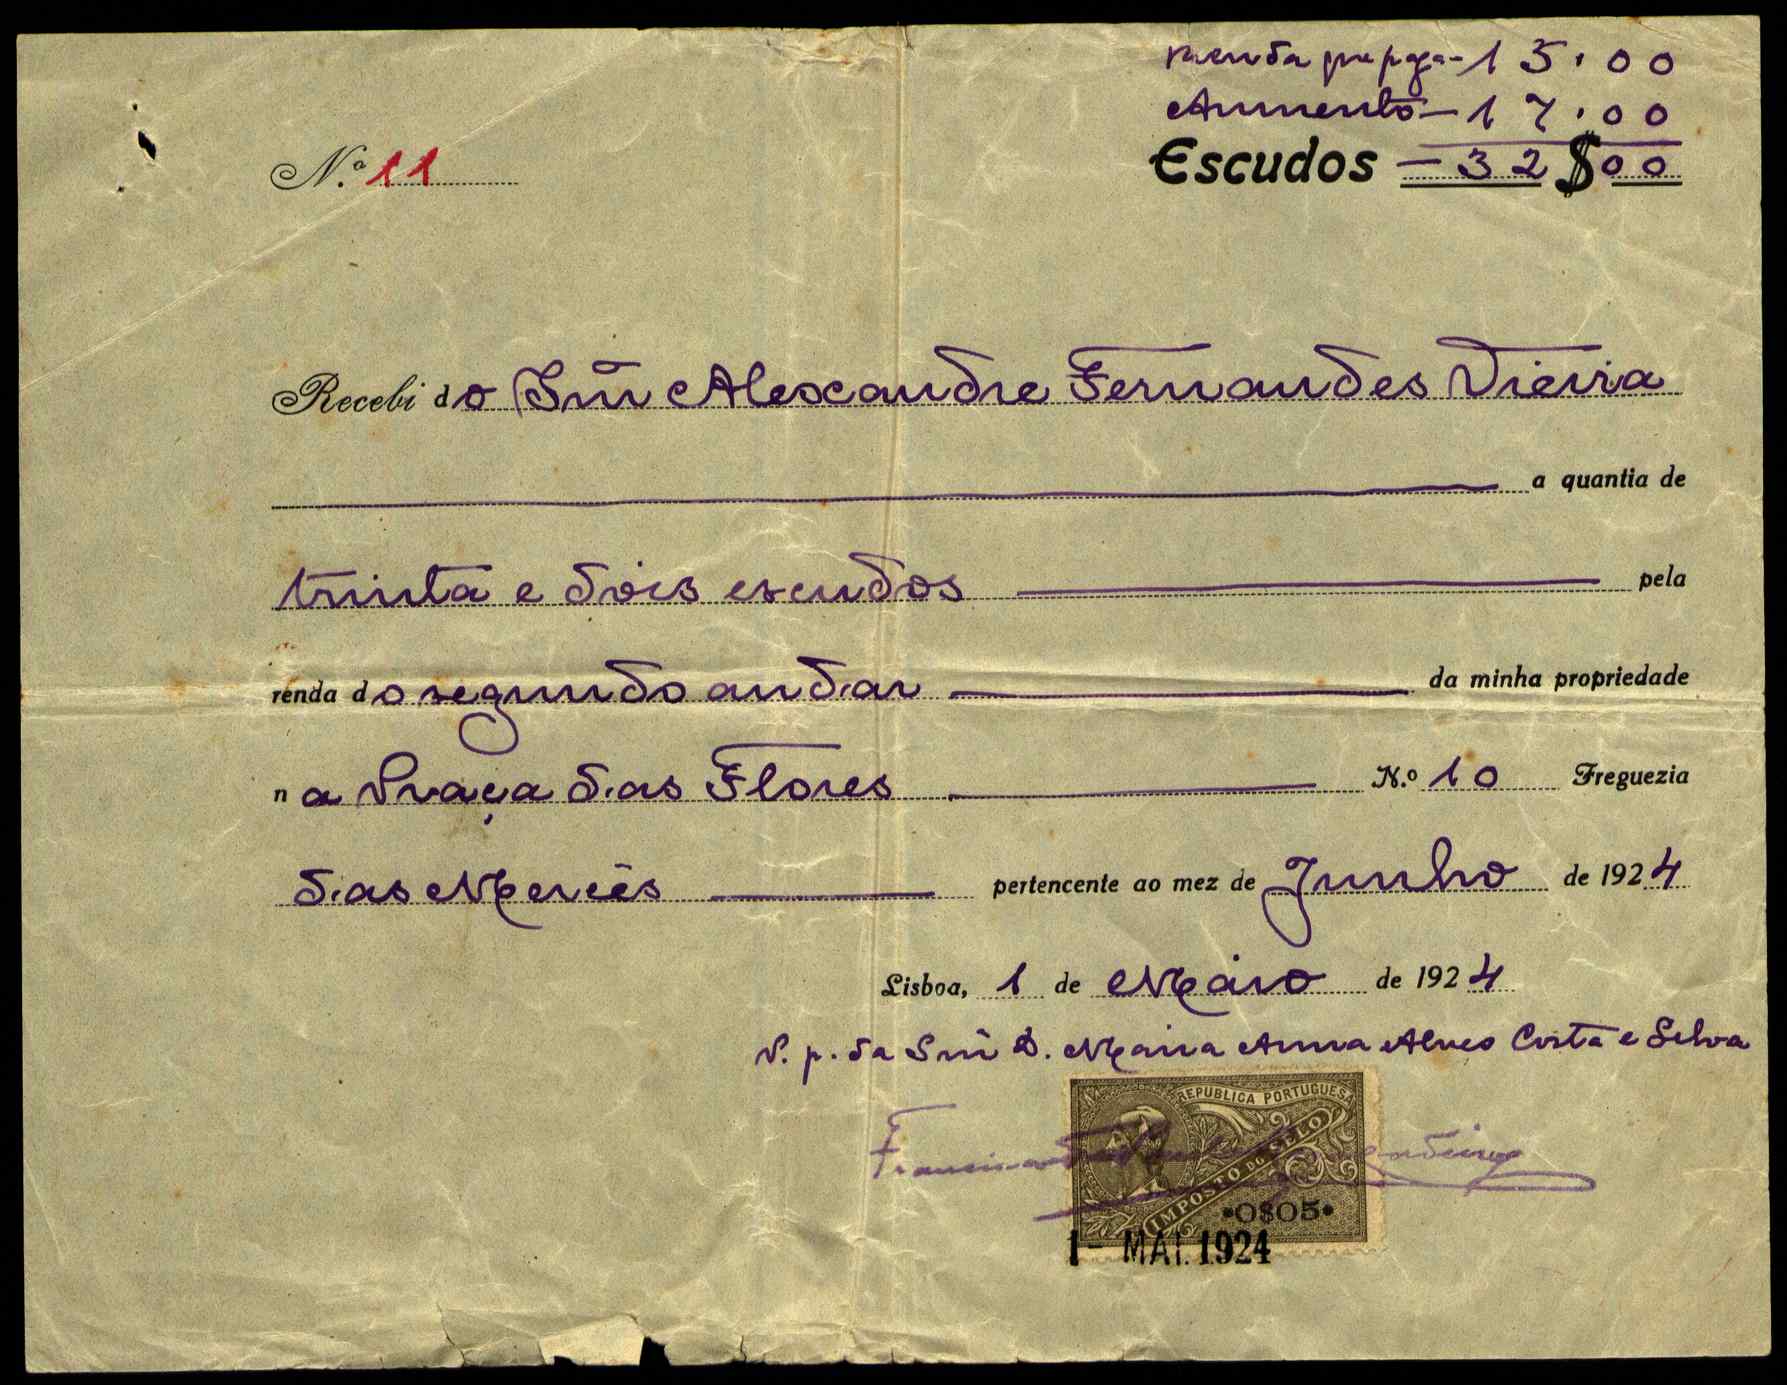 renda que paga - 15.00
Aumento - 17.00
N.º 11
Escudos - 32$00
Recebi do Snr̃ Alexandre Fernandes Vieira
a quantia de
trinta e dois escudos pela
renda do segundo andar da minha propriedade
na Praça das Flores N.º 10 Freguezia
das Mercês pertencente ao mez de Junho de 1924
Lisboa, 1 de Maio de 1924
P. p. da Snrã D. Maria Anna Alves Costa e Silva
REPUBLICA PORTUGUESA
IMPOSTO DO SELO
Francisco
•0$05•
1 - MAI. 1924